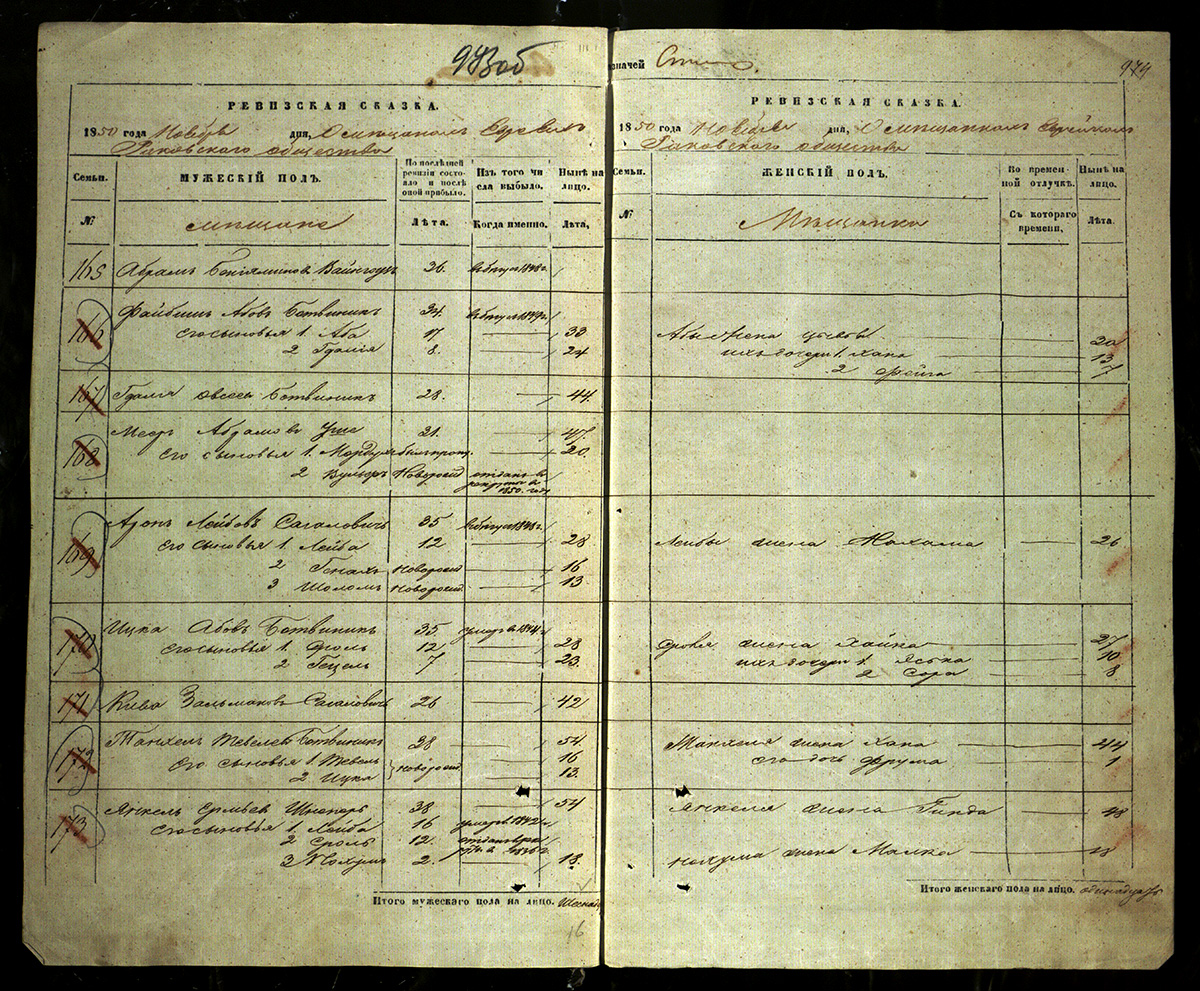 973 об
РЕВИЗСКАЯ СКАЗКА.
1850 года Ноября дня, О мещанахъ Евреяхъ
Раковскаго общества
Семьи.
МУЖЕСКІЙ ПОЛЪ.
По послѣдней ревизіи состояло и послѣ оной прибыло.
Изъ того числа выбыло.
Нынѣ на лицо.
№
мещане
Лѣта.
Когда именно.
Лѣта,
165 Абрамъ Беніяминовъ 36. въ бѣгу съ 1848 г.
166 Файбишъ Абовъ Ботвиникъ 34. въ бѣгу съ 1849 г.
его сыновья 1. Аба 17 33
2 Гдалія 8. 24
167 Гдалія Овсеевъ Ботвиникъ 28. 44.
168 Мееръ Абрамовъ 31. 47.
его сыновья 1. 20.
2 Вульфъ Новорожд отданъ въ рекруты въ 1850. году
169 Аронъ Лейбовъ Сагаловичъ 35 въ бѣгу съ 1848 г.
его сыновья 1. Лейба 12 28
2 Генахъ Новорожд 16
3 Шоломъ Новорожд. 13.
170 Ицка Абовъ Ботвиникъ 35. умеръ въ 1844 г.
его сыновья 1. Фроль 12 28
2 Гецель 7 23.
171 Кива Зальмановъ Сагаловичъ 26 42
172 Манхель Тевелевъ Ботвиникъ 38 54.
его сыновья 1. Тевель 16
2 Ицка Новорожд. 13.
173 Янкель Шнеперъ 38 54
его сыновья 1. Лейба 16 умеръ 1842 г.
2 Сроль 12. отданъ въ рекр. въ 1836 г.
3 Нохумъ 2. 18.
Итого мужескаго пола на лицо. Шеснадц
16
значей
974
РЕВИЗСКАЯ СКАЗКА.
1850 года Ноября дня, О мещанкахъ Еврейкахъ
Раковскаго общества
Семьи.
ЖЕНСКІЙ ПОЛЪ.
Во временной отлучкѣ.
Нынѣ на лицо.
№
Мещанки
Съ котораго времени.
Лѣта.
Абы жена 30
ихъ дочери 1. Хана 13
2 Фейга 7
Лейбы жена Нахама 26
Фроля жена Хайка 27
ихъ дочери 1. Яська 10
2 Сора 8
Манхеля жена Хана 44
его дочь Фрума 1
Янкеля жена Гинда 48
Нохума жена Малка 18
Итого женскаго пола на лицо. одинадцать